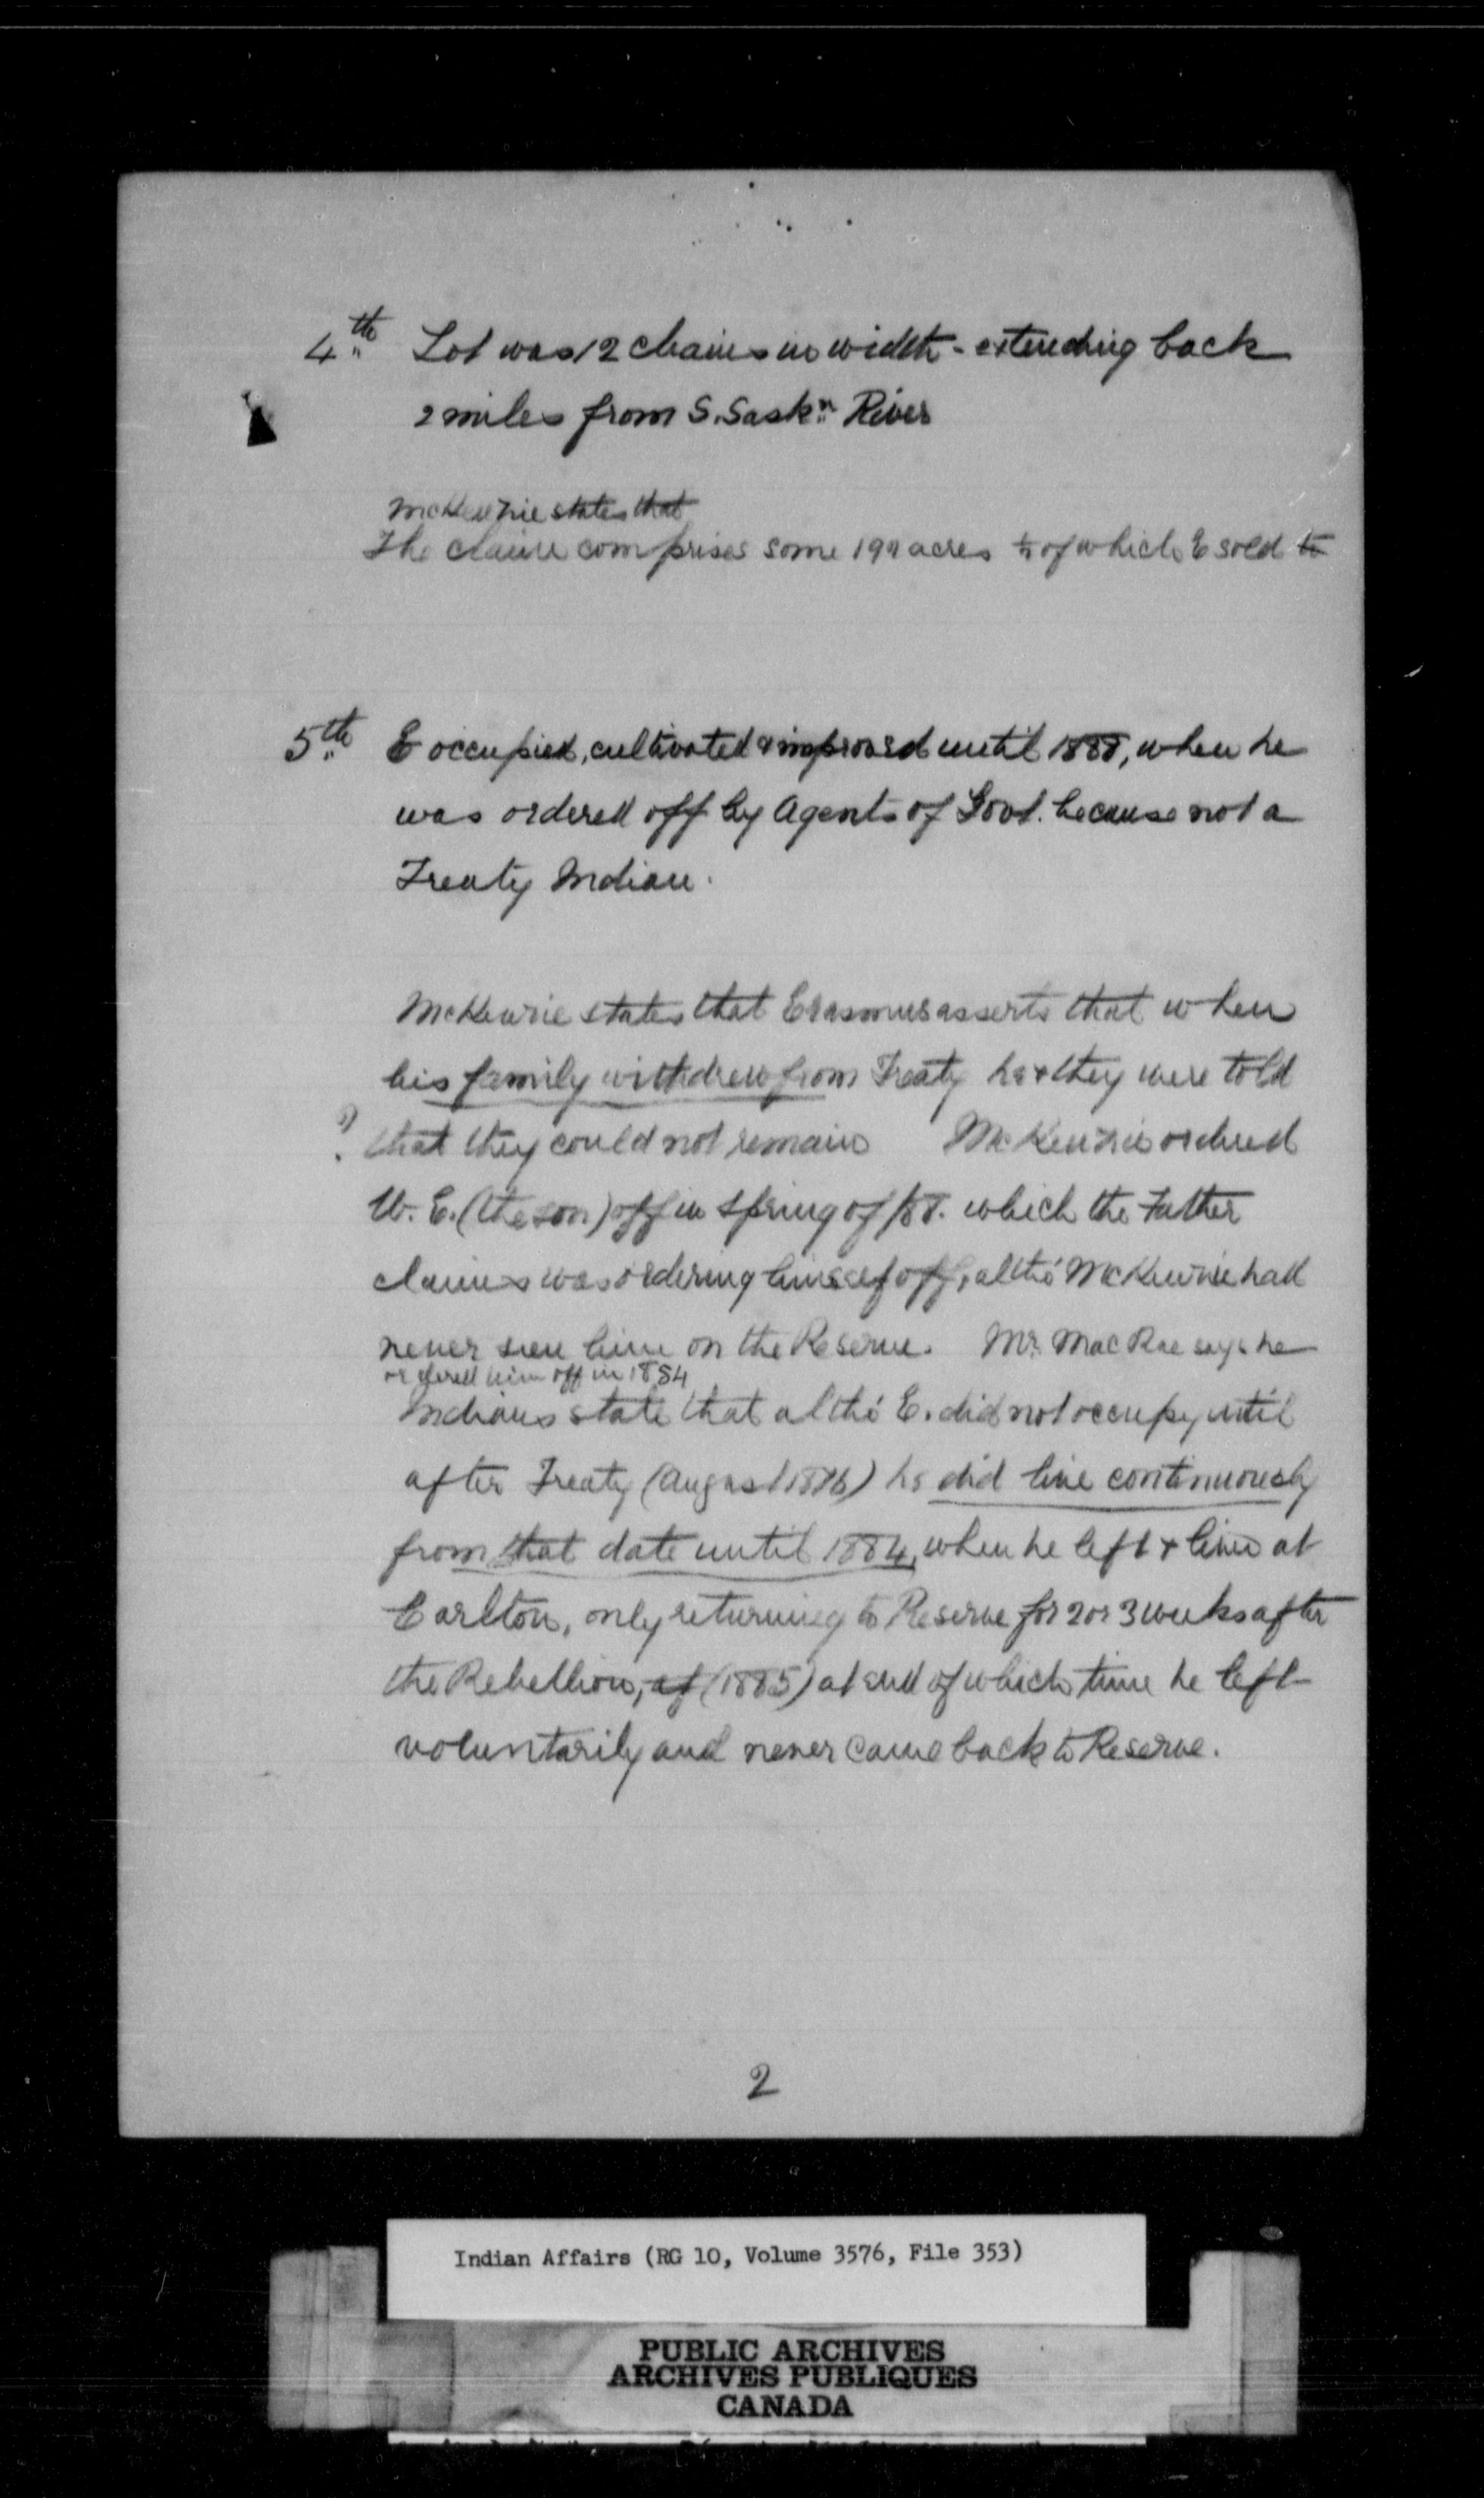 4th Lot was 12 chains in width - extending back
2 miles from S. Saskn River
McKenzie states that
The claim comprises some 192 acres ½ of which E sold to
5th E occupied, cultivated & improved until 1888, when he
was ordered off by Agents of Govt. because not a
Treaty Indian.
McKenzie states that Erasmus asserts that when
his family withdrew from Treaty he & they were told
? that they could not remain McKenzie ordered
W. E. (the son) off in Spring of /88. which the Father
claims was ordering himself off, altho' McKenzie had
never seen him on the Reserve. Mr. MacRae says he
ordered him off in 1884
Indians state that altho' E. did not occupy until
after Treaty (August 1876) he did live continuously
from that date until 1884, when he left & lived at
Carlton, only returning to Reserve for 2 or 3 weeks after
the Rebellion, of (1885) at end of which time he left
voluntarily and never came back to Reserve.
2
Indian Affairs (RG 10, Volume 3576, File 353)
PUBLIC ARCHIVES
ARCHIVES PUBLIQUES
CANADA